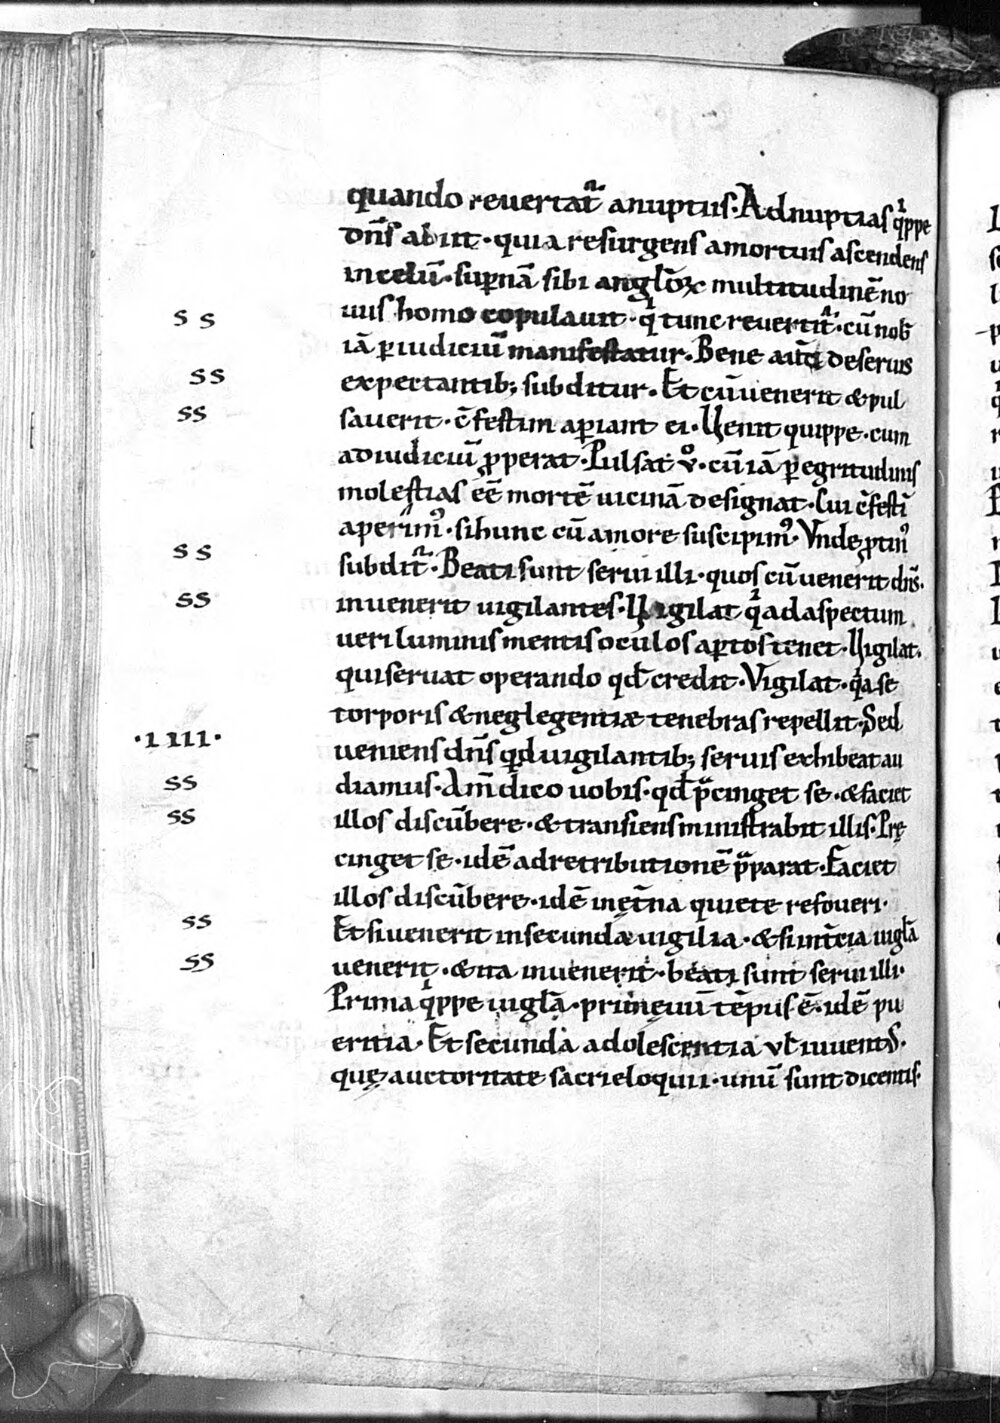 quando reuertat᷑ anuptiis·Adnuptias q͛ppe
dn̄s abiit·quia resurgens amortuis ascendens
incelū·sup̄nā sibi angl̄oꝝ multitudinē no
s s uus homo copulauit·q͛ tunc reuertit᷑·cū nob̄
iā p̱iudiciū manifestatur.Bene aut̄ deseruis
ss expectantib; subditur.Et cūuenerit &pul
ss sauerit·c̄festim ap̱iant ei·Uenit quippe·cum
adiudiciū ꝓperat·Pulsat v̊·cū iā p̱ egritudinis
molestias eē mortē uicinā designat·Cui c̄festī
aperimꝰ·sihunc cū amore suscipimꝰ·Vnde ꝓtinꝰ
s s subdit᷑·Beati sunt serui illi·quos cū uenerit dn̄s·
ss inuenerit uigilantes·Uigilat q͛ adaspectum
ueri luminis mentis oculos ap̱tos tenet·Uigilat·
qui seruat operando qd̄ credit·Vigilat·q͛ a se
torporis & neglegentiæ tenebras repellit·Sed
·IIII· ueniens dn̄s quid uigilantib; seruis exhibeat au
ss diamus·Am̄ dico uobis·qd̄ p̄cinget se·& faciet
ss illos discūbere·& transiens ministrabit illis·Prę
cinget se·idē ad retributionē p̄parat·Faciet
illos discūbere·idē inęt̄na quiete refoueri·
ss Et si uenerit insecunda uigilia·& si int̄cia uigl̄a
ss uenerit·&ita inuenerit·beati sunt serui illi·
Prima q͛ppe uigl̄a·primęuū tēpus ē·idē pu
eritia·Et secunda adolescentia vl̄ iuuent̄·
quę auctoritate sacri eloquii·unū sunt dicentis·